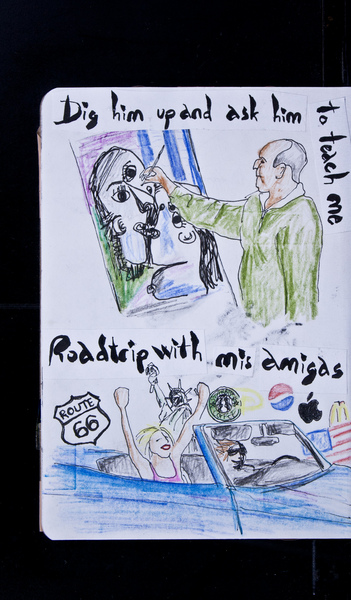 Dig him up and ask him
to teach me
Roadtrip with mis amigas
ROUTE
66